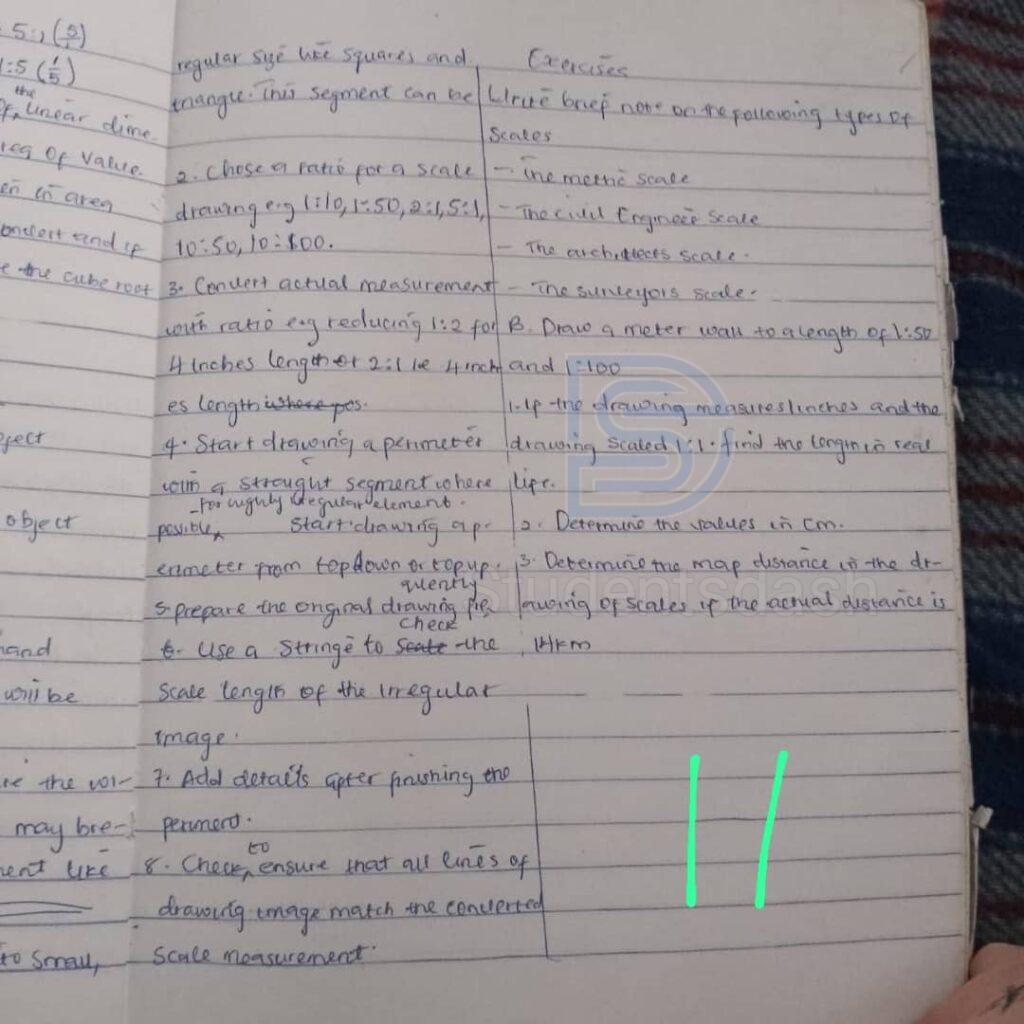 5:, (5/1)
1:5 (1/5)
the
of linear dime.
rea of value.
en in area
onvert and if
e the cube root
ject
object
hand
will be
re the vol-
may bre-
ment like
to small,
regular size like squares and
triangle. This segment can be
2. Chose a ratio for a scale
drawing e.g 1:10, 1:50, 2:1, 5:1,
10:50, 10:100.
3. Convert actual measurement
with ratio e.g reducing 1:2 for
4 inches length or 2:1 ie 4 inch
es length where pos.
4. Start drawing a perimeter
with a straught segment where
- for highly iregular element.
possible, Start drawing a p-
erimeter from top down or top up.
quently
5. prepare the original drawing fre
check
6. Use a Stringe to scale the
scale length of the irregular
image.
7. Add details after finishing the
periment.
to
8. Check, ensure that all lines of
drawing image match the converted
scale measurement.
Exercises
Write brief note on the following types of
scales
- The metric scale
- The civil Engineer scale
- The architects scale.
- The surveyors scale.
B. Draw a meter wall to a length of 1:50
and 1:100
1. If the drawing measures 1 inches and the
drawing scaled 1:1. find the length in real
life.
2. Determine the values in cm.
3. Determine the map distance in the dr-
awing of scales if the actual distance is
14km
Studentsdash
11